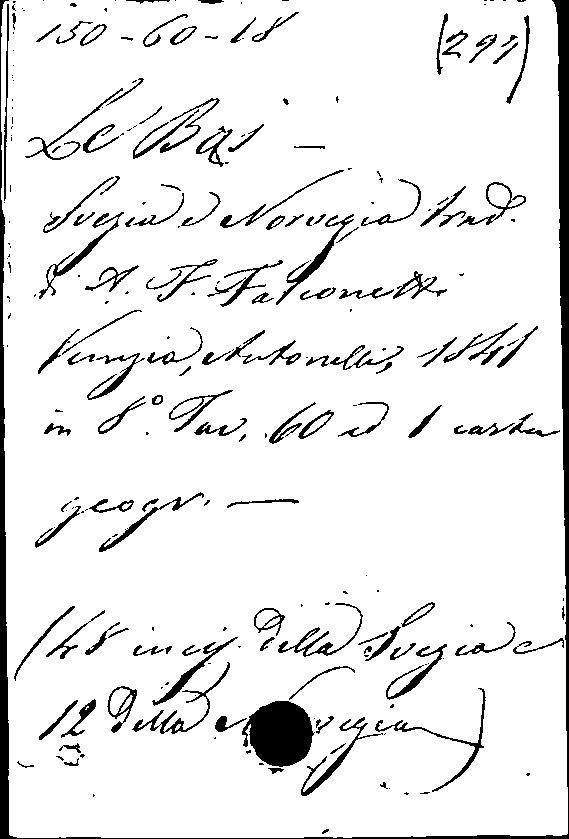 150-60-18 (297)
Le Bas —
Svezia e Norvegia trad.
di A. F. Falconetti
Venezia, Antonelli, 1841
in 8.° Tav. 60 ed 1 carta
geogr. —
(48 incis. della Svezia e
12 della Norvegia)